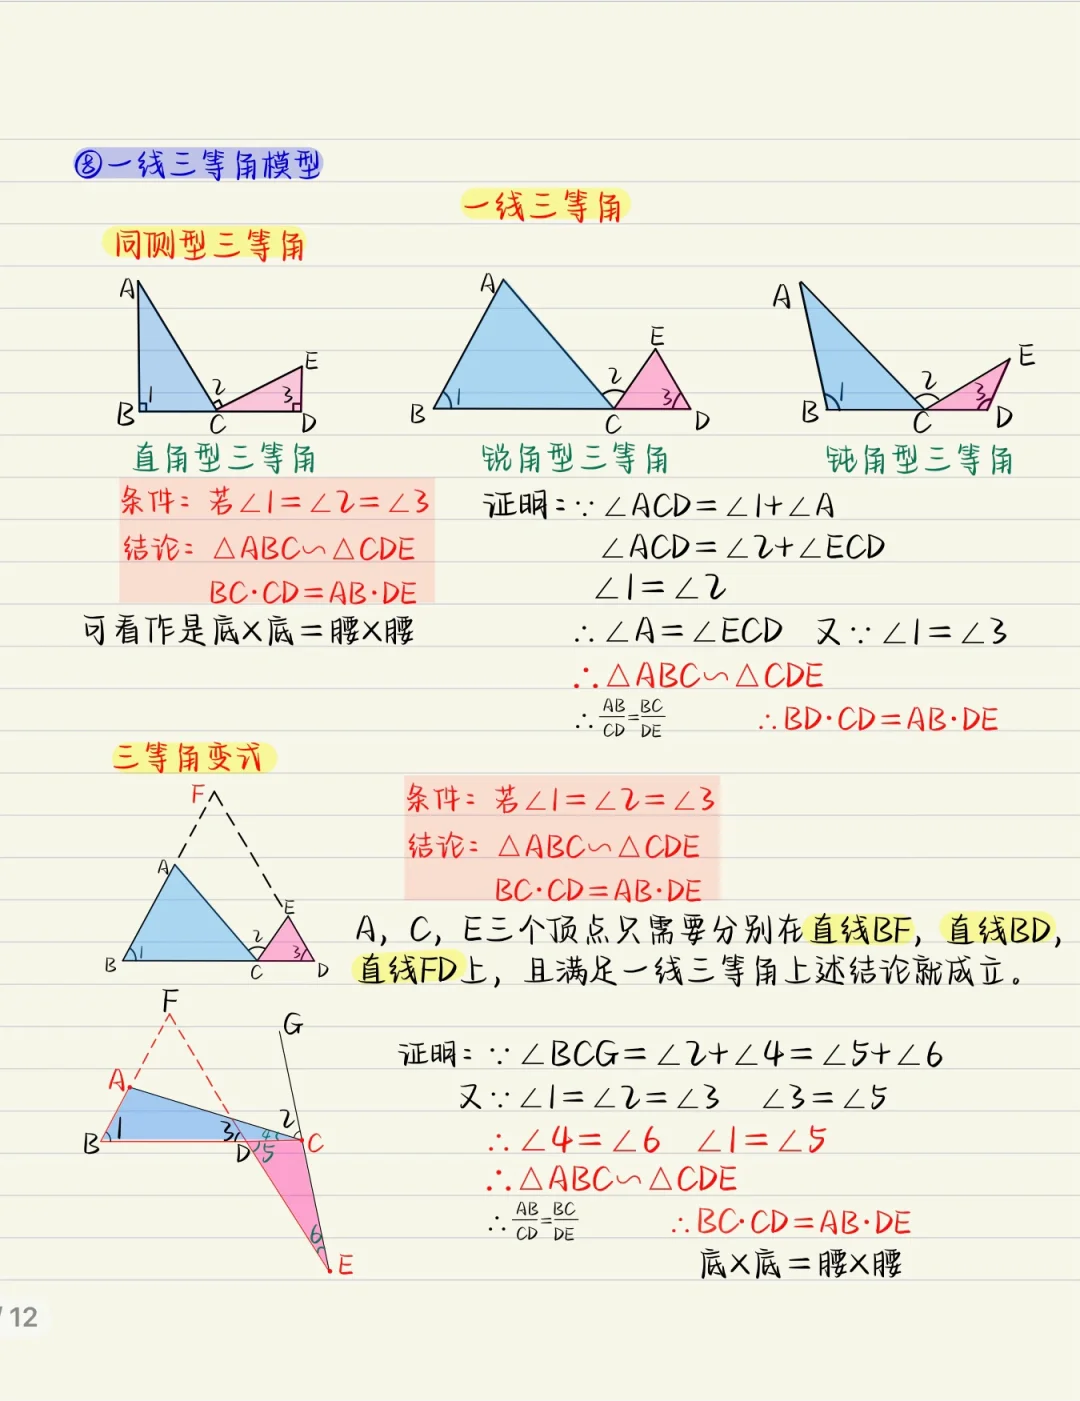 ⑧一线三等角模型
一线三等角
同侧型三等角
A
B
1
2
C
3
E
D
A
B
1
2
C
E
3
D
A
B
1
2
C
E
3
D
直角型三等角
锐角型三等角
钝角型三等角
条件：若∠1=∠2=∠3
结论：△ABC∽△CDE
BC·CD=AB·DE
可看作是底×底=腰×腰
证明：∵∠ACD=∠1+∠A
∠ACD=∠2+∠ECD
∠1=∠2
∴∠A=∠ECD 又∵∠1=∠3
∴△ABC∽△CDE
∴AB/CD=BC/DE ∴BD·CD=AB·DE
三等角变式
F
A
B
1
2
C
E
3
D
条件：若∠1=∠2=∠3
结论：△ABC∽△CDE
BC·CD=AB·DE
A，C，E三个顶点只需要分别在直线BF，直线BD，
直线FD上，且满足一线三等角上述结论就成立。
F
G
A
B
1
3
D
4
5
2
C
6
E
证明：∵∠BCG=∠2+∠4=∠5+∠6
又∵∠1=∠2=∠3 ∠3=∠5
∴∠4=∠6 ∠1=∠5
∴△ABC∽△CDE
∴AB/CD=BC/DE ∴BC·CD=AB·DE
底×底=腰×腰
/12